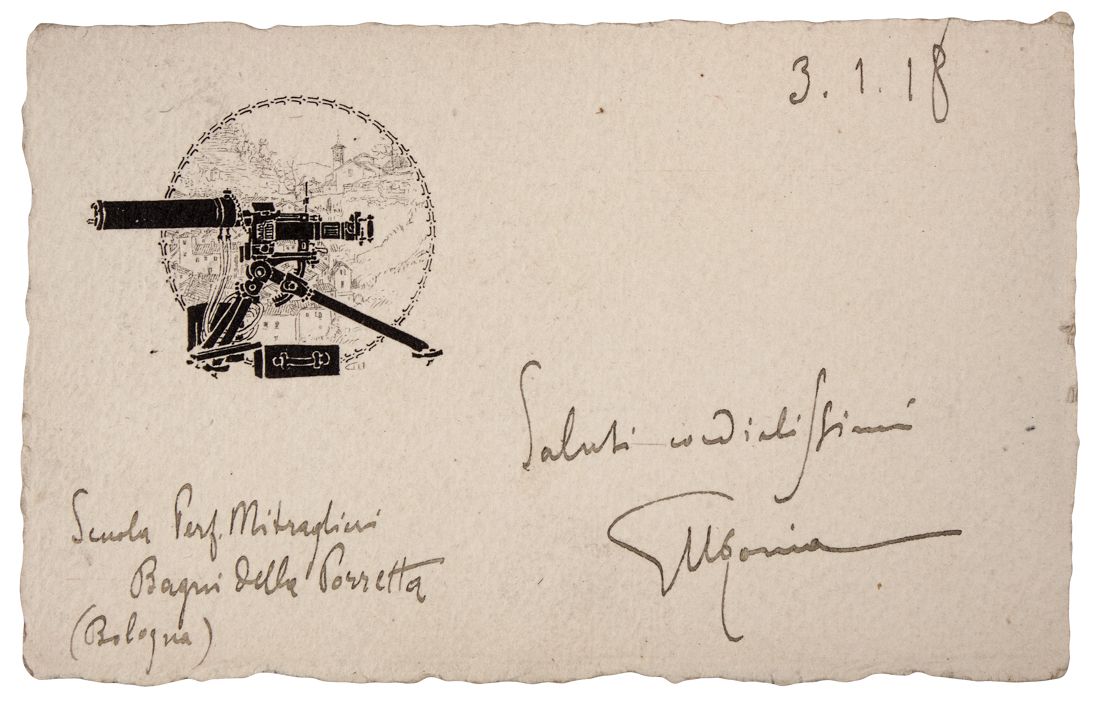 3.1.18
Saluti cordialissimi
Scuola Perf. Mitraglieri
Bagni della Porretta
(Bologna)